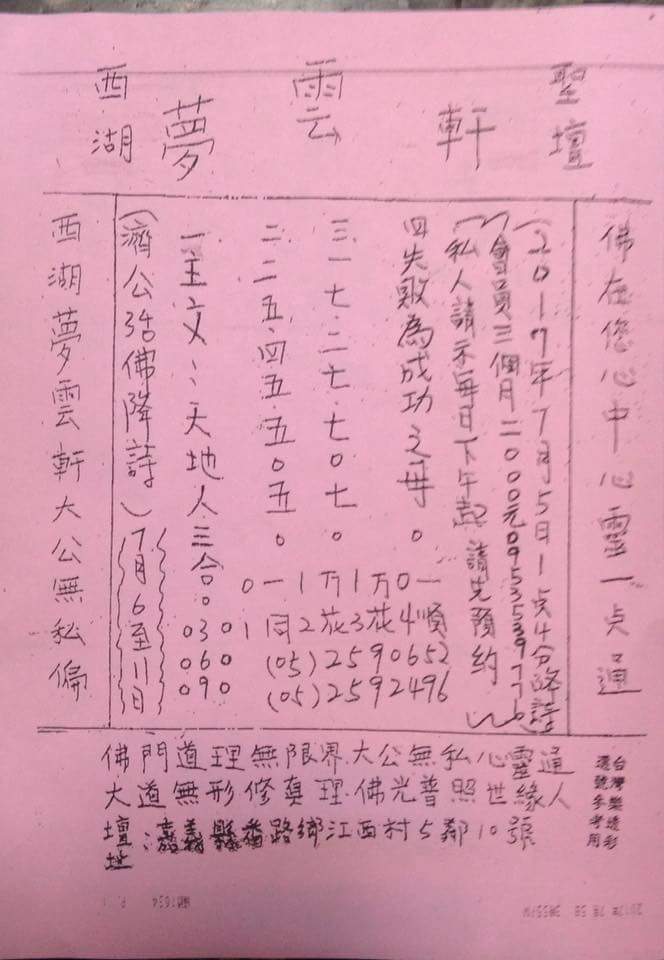 西湖夢雲軒聖壇
佛在您心中心靈一点通
(2017年7月5日1点4分降詩)
會員三個月二000元
私人請示每日下午起請先預約
四失敗為成功之母。
三一七.二七.七0七。
二二五.四五.五0五。
一主文:天地人三合。
(濟公活佛降詩)7月6至11日
西湖夢雲軒大公無私偏
0一1万1万0一
030 1同2花3花4順
060 (05)2590652
090 (05)2592496
佛門道理無限界.大公無私心靈通
大道無形修真理.佛光普照世緣人
壇址:嘉義縣番路鄉江西村5鄰10號
台灣樂透彩
選號參考用